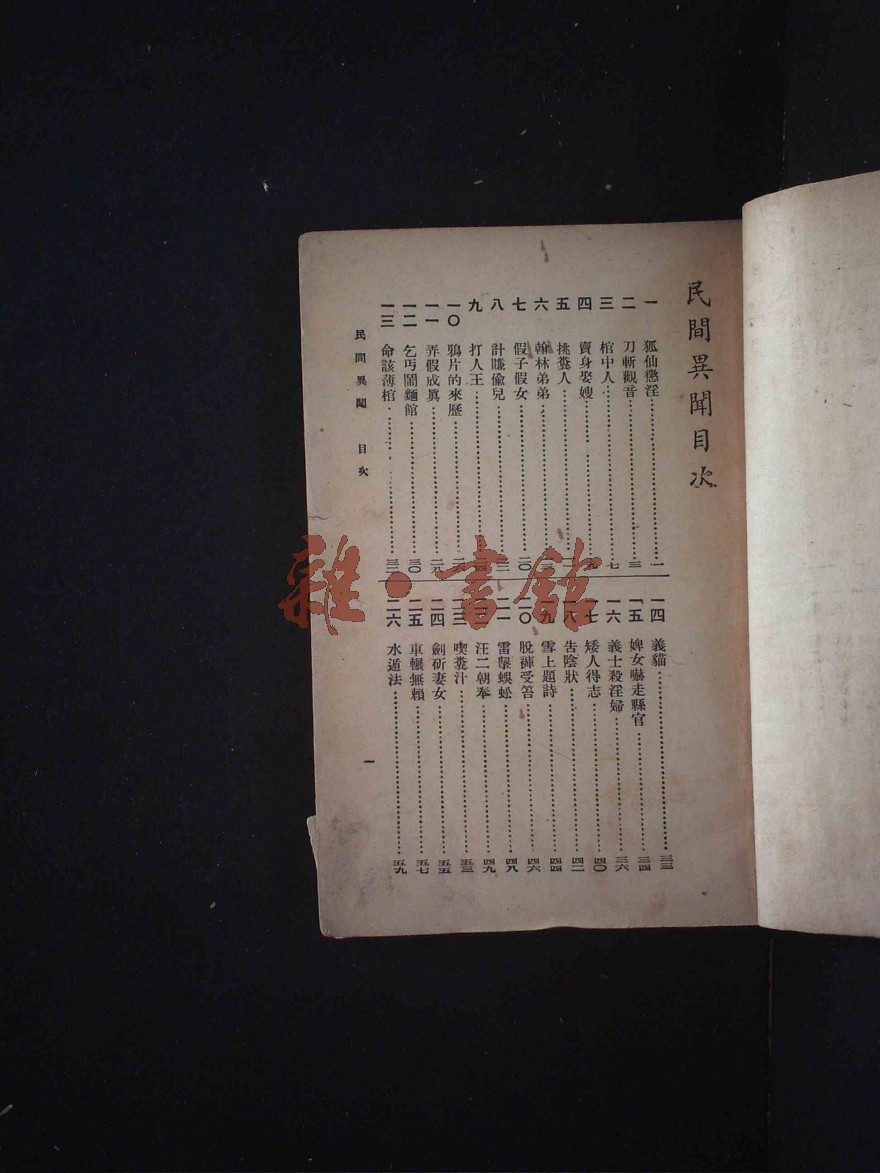 民間異聞目次
一 狐仙懲淫 一
二 刀斬觀音 三
三 棺中人 七
四 賣身娶嫂
五 挑糞人
六 翰林弟弟
七 假子假女 二〇
八 計賺偷兒
九 打人王
一〇 鴉片的來歷
一一 弄假成眞 二九
一二 乞丐鬧麵館 三〇
一三 命該薄棺 三二
一四 義貓 三三
一五 婢女嚇走縣官 三四
一六 義士殺淫婦 三六
一七 矮人得志 四〇
一八 告陰狀 四二
一九 雪上題詩 四四
二〇 脫褲受笞 四六
二一 雷擊蜈蚣 四八
二二 汪二朝奉 四九
二三 喫糞汁 五三
二四 劍斫妻女 五五
二五 車輾無賴 五七
二六 水遁法 五九
民間異聞 目次
一
雜·書館